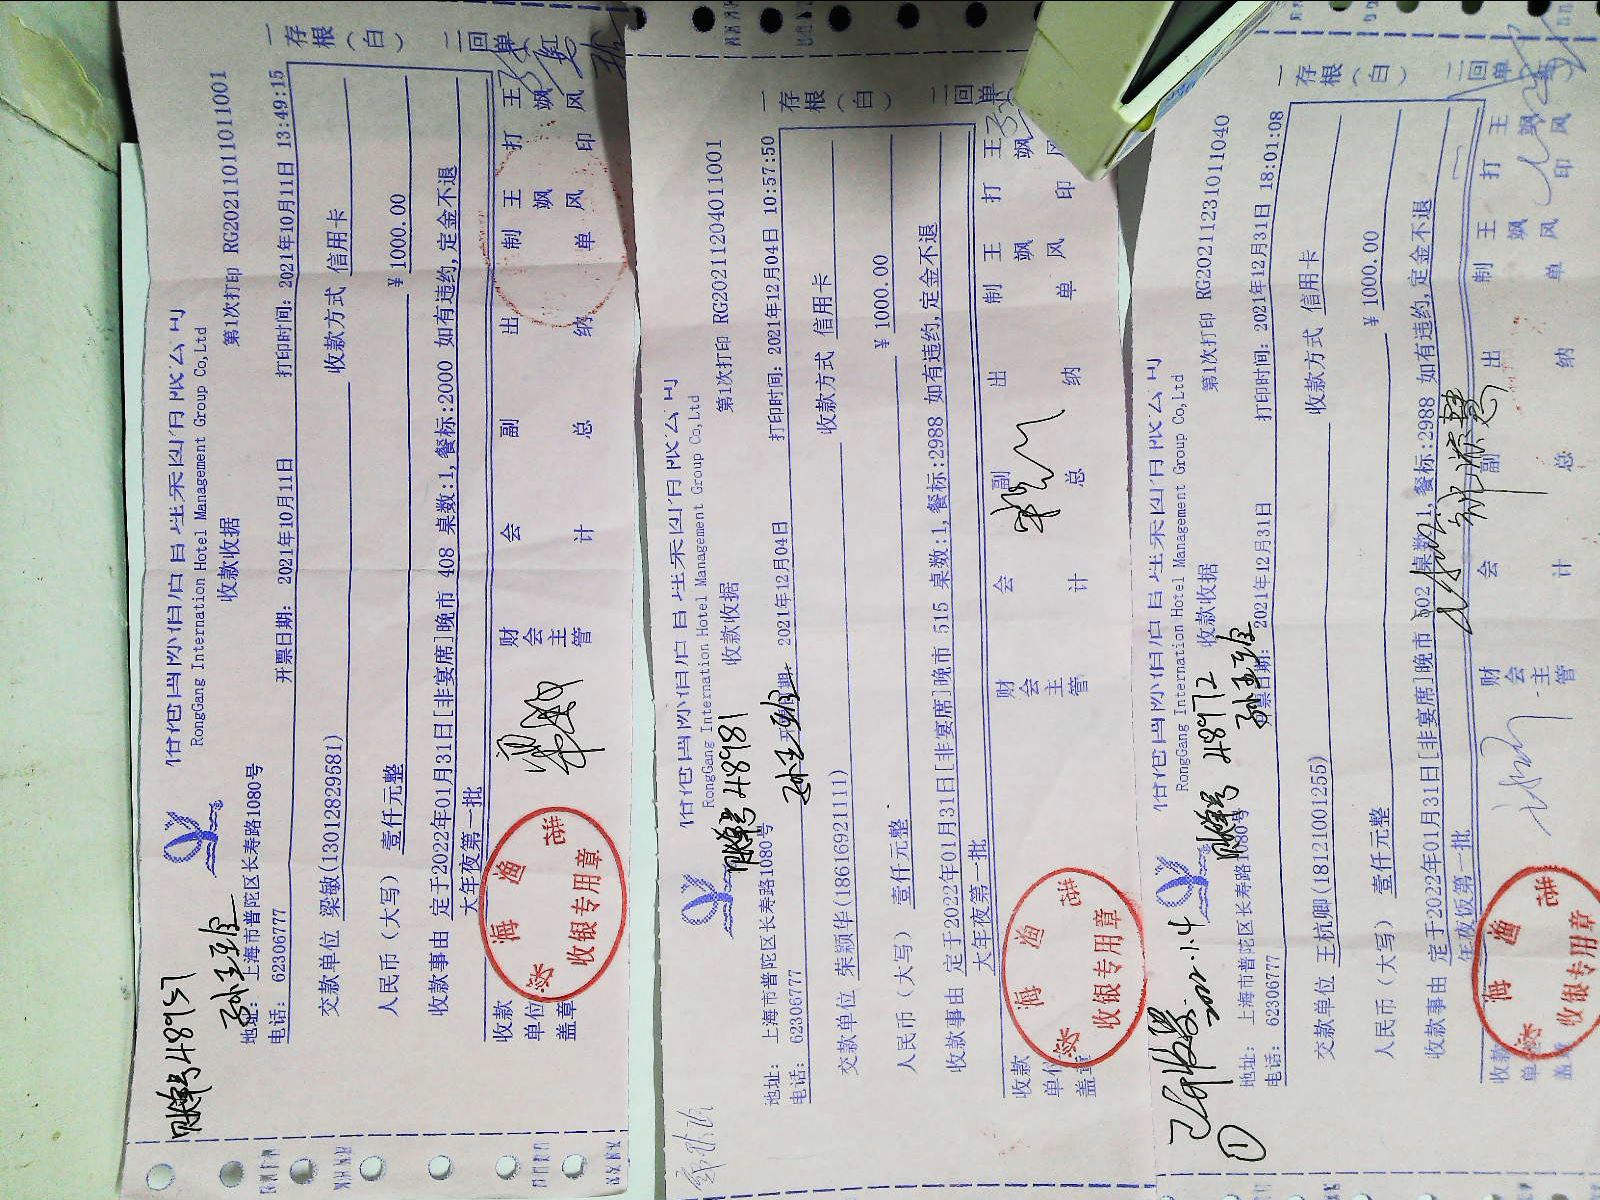 账单号48957
孙玉玺
RongGang International Hotel Management Group Co,Ltd
收款收据
第1次打印 RG20211011011001
地址: 上海市普陀区长寿路1080号
电话: 62306777
开票日期: 2021年10月11日
打印时间: 2021年10月11日 13:49:15
交款单位 梁敏(13012829581)
收款方式 信用卡
人民币（大写） 壹仟元整
¥ 1000.00
收款事由 定于2022年01月31日[非宴席]晚市 408 桌数:1,餐标:2000 如有违约,定金不退
大年夜第一批
收款单位盖章
财会主管
会计
副总
出纳
制单
王飒风
打印
王飒风
一存根（白）
二回单
收银专用章
账单号48981
RongGang International Hotel Management Group Co,Ltd
收款收据
第1次打印 RG20211204011001
地址: 上海市普陀区长寿路1080号
电话: 62306777
2021年12月04日
打印时间: 2021年12月04日 10:57:50
交款单位 荣颖华(18616921111)
收款方式 信用卡
人民币（大写） 壹仟元整
¥ 1000.00
收款事由 定于2022年01月31日[非宴席]晚市 515 桌数:1,餐标:2988 如有违约,定金不退
大年夜第一批
收款单位盖章
财会主管
会计
副总
出纳
制单
王飒风
打印
王飒风
一存根（白）
二回单
收银专用章
账单号 48972
RongGang International Hotel Management Group Co,Ltd
收款收据
第1次打印 RG20211231011040
地址: 上海市普陀区长寿路1080号
电话: 62306777
开票日期: 2021年12月31日
打印时间: 2021年12月31日 18:01:08
交款单位 王杭卿(18121001255)
收款方式 信用卡
人民币（大写） 壹仟元整
¥ 1000.00
收款事由 定于2022年01月31日[非宴席]晚市 502 桌数:1,餐标:2988 如有违约,定金不退
年夜饭第一批
收款单位盖章
财会主管
会计
副总
出纳
制单
王飒风
打印
王飒风
一存根（白）
二回单
收银专用章
2022.1.4
①